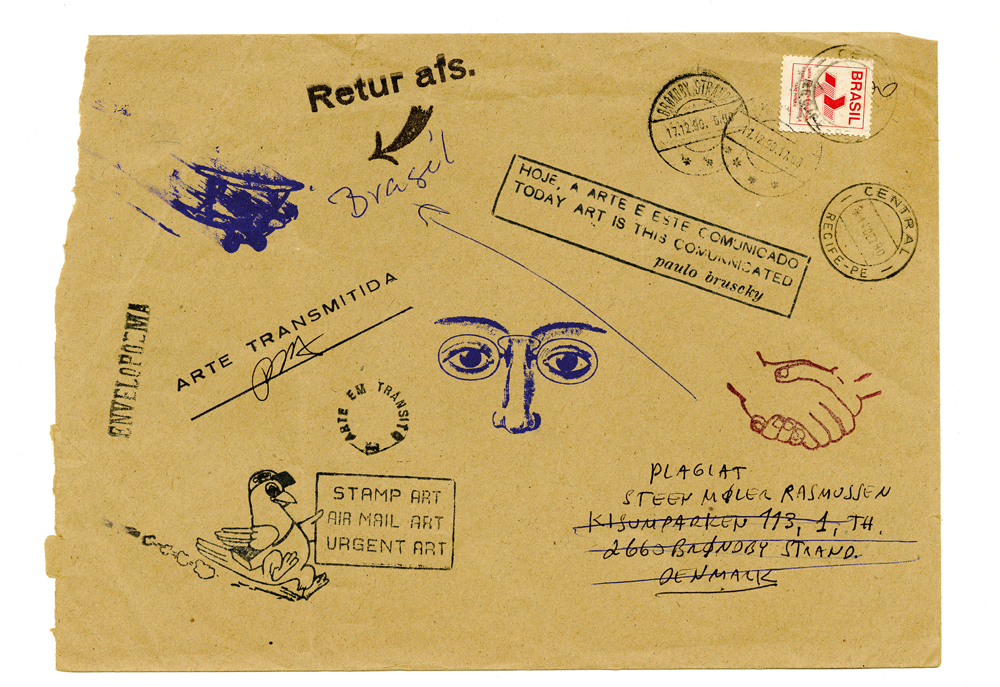 Retur afs.
Brasil
BRASIL
BRØNDBY STRAND
17.12.90.
17.12.90.
CENTRAL
RECIFE-PE
HOJE, A ARTE E ESTE COMUNICADO
TODAY ART IS THIS COMUNNICATED
paulo bruscky
ARTE TRANSMITIDA
ENVELOPOEMA
ARTE EM TRÂNSITO
STAMP ART
AIR MAIL ART
URGENT ART
PLAGIAT
STEEN MØLER RASMUSSEN
KISUMPARKEN 113, 1, TH.
2660 BRØNDBY STRAND.
DENMARK